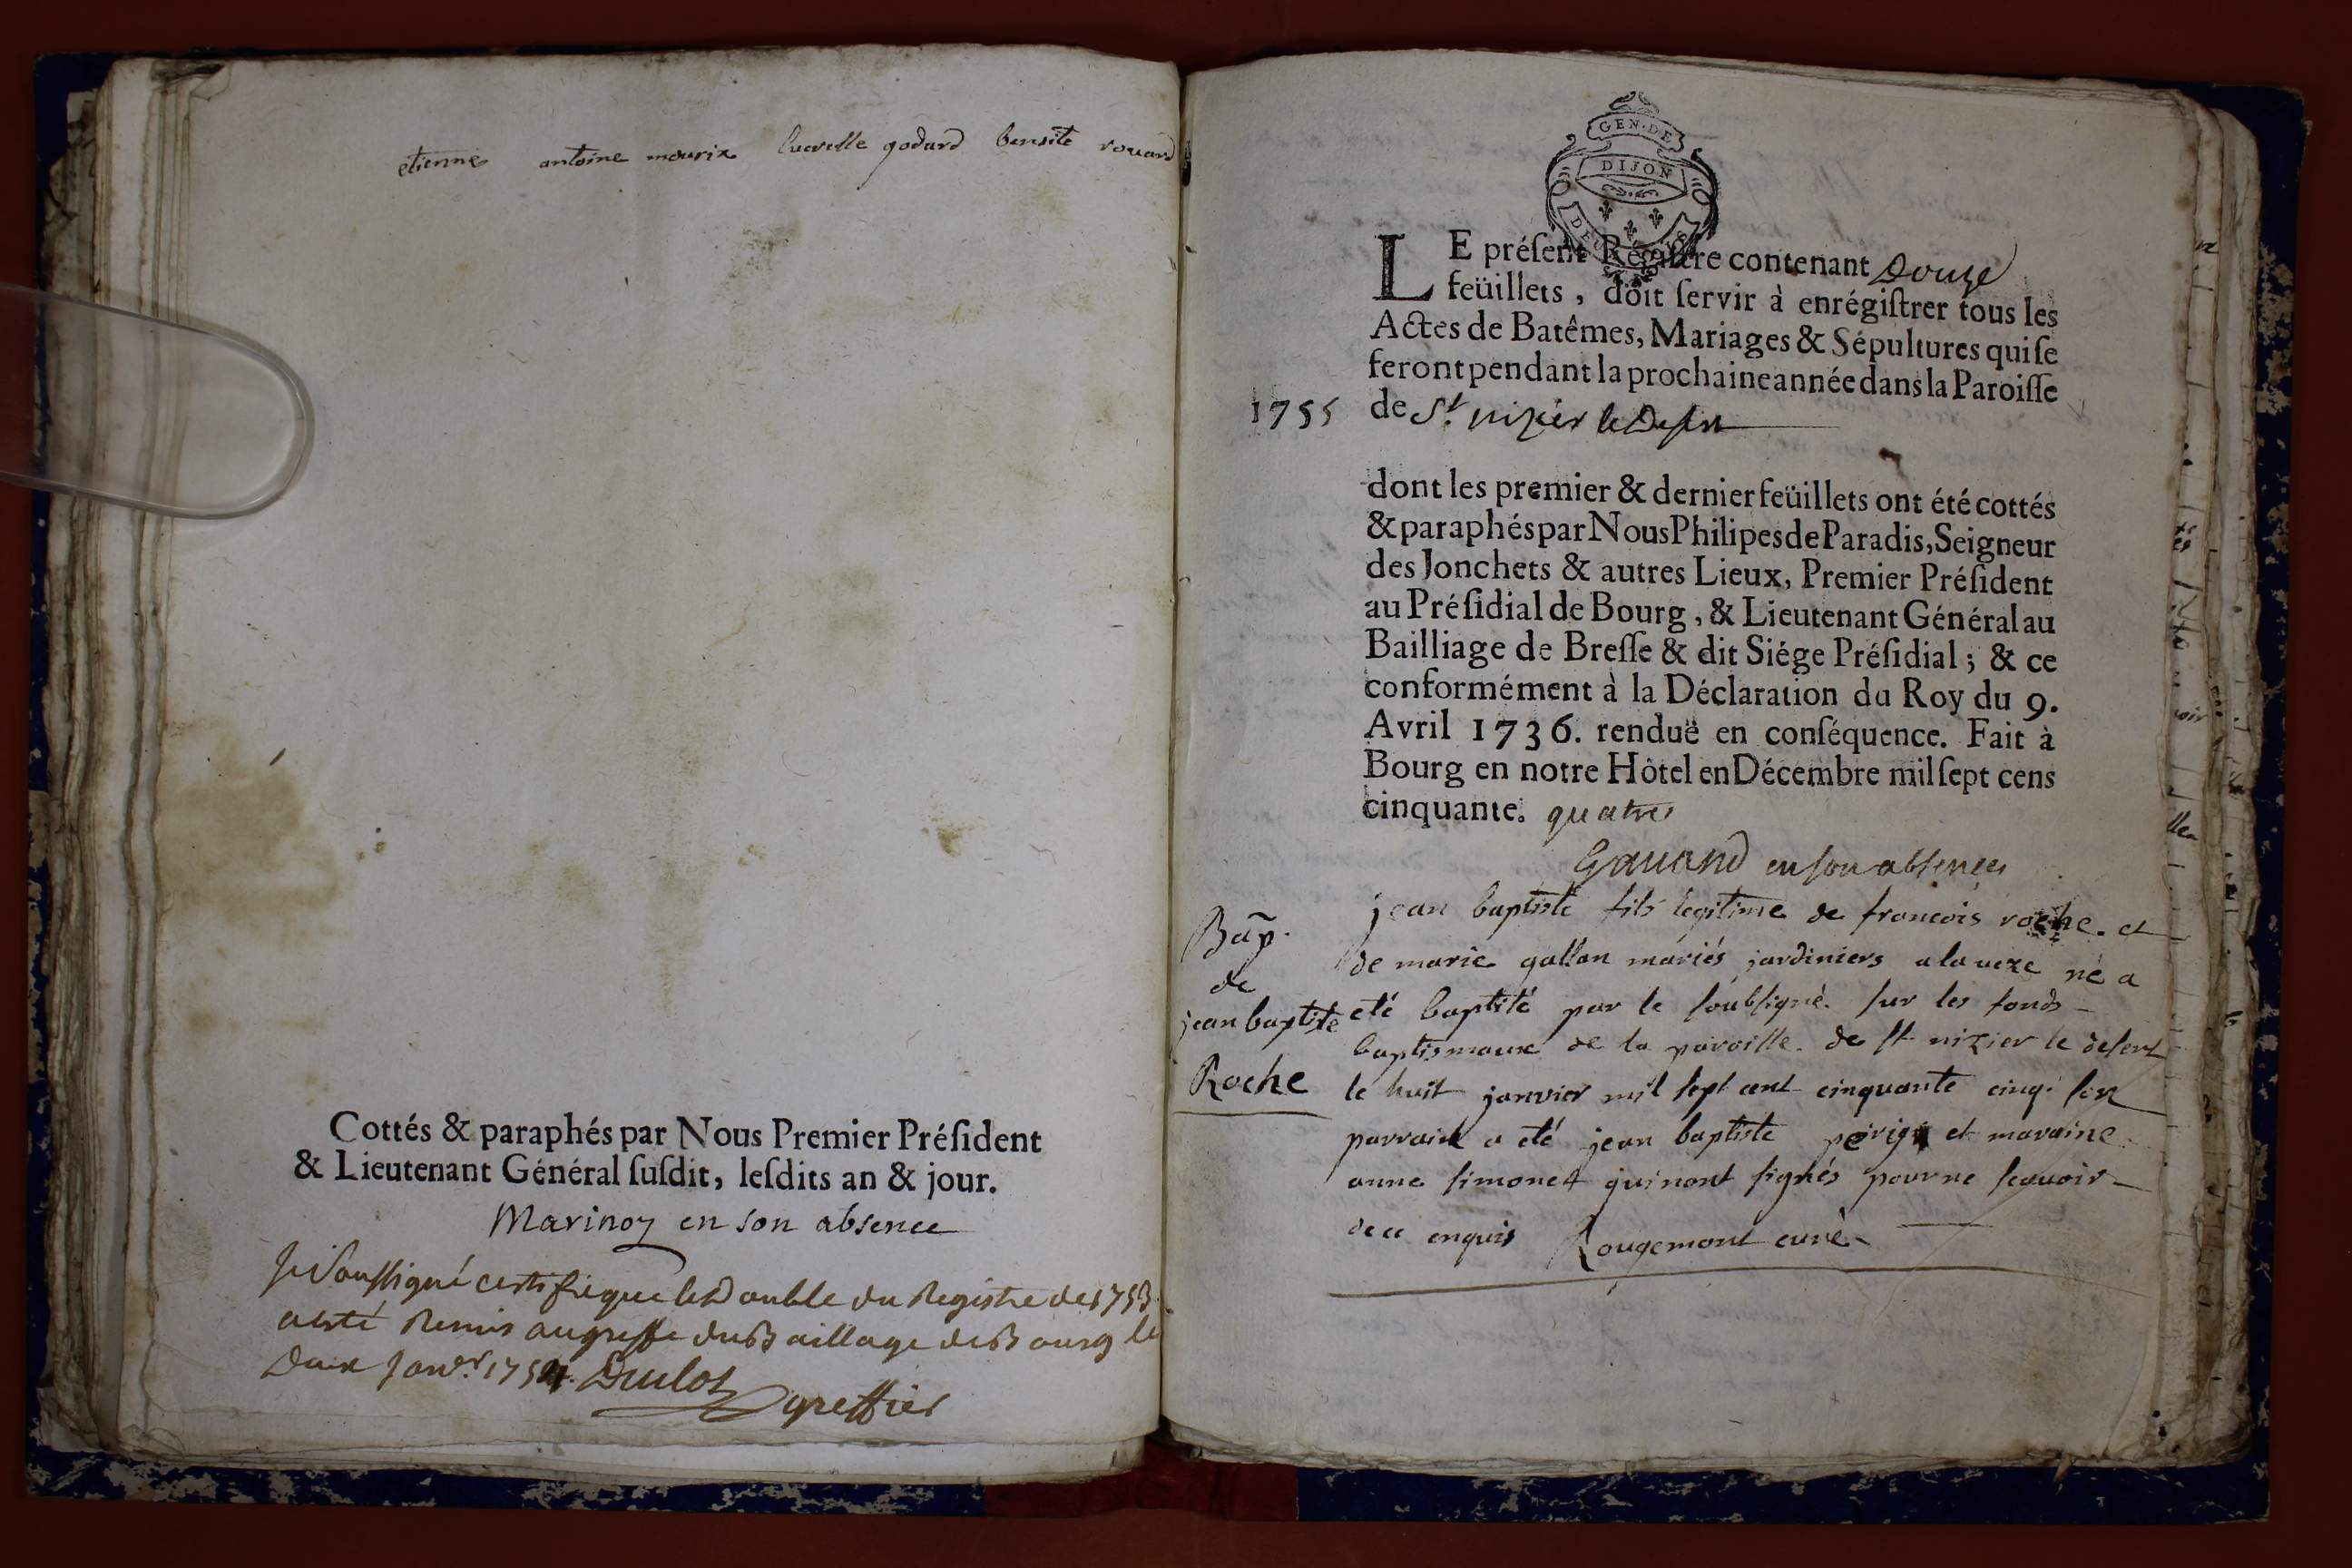 etienne antoine mourix godard benoite rouard
Cottés & paraphés par Nous Premier Préſident
& Lieutenant Général ſuſdit, leſdits an & jour.
Marinoz en son absence
Je Soussigné certifie que le Double du Registre de 1753
a esté Remis au greffe du Baillage de Bourg le
Deux Janvr. 1754 Dulot
greffier
GEN. DE
DIJON
LE préſent Régiſtre contenant Douze
feüillets, doit ſervir à enrégiſtrer tous les
Actes de Batêmes, Mariages & Sépultures qui ſe
feront pendant la prochaine année dans la Paroiſſe
1755 de St. nizier le Desert
dont les premier & dernier feüillets ont été cottés
& paraphés par Nous Philipes de Paradis, Seigneur
des Jonchets & autres Lieux, Premier Préſident
au Préſidial de Bourg, & Lieutenant Général au
Bailliage de Breſſe & dit Siége Préſidial; & ce
conformément à la Déclaration du Roy du 9.
Avril 1736. renduë en conſéquence. Fait à
Bourg en notre Hôtel en Décembre mil ſept cens
cinquante. quatre
Gauand en son absence
Bap.
de
jean baptiste
Roche
jean baptiste fils legitime de francois roche. et
de marie gallan mariés jardiniers a la né a
eté baptisé par le soubsigné sur les fonds
baptismaux de la paroisse de st nizier le desert
le huit janvier mil sept cent cinquante cinq. son
parrain a eté jean baptiste et maraine
anne simonet qui nont signés pour ne scavoir
de ce enquis Rougemont curé